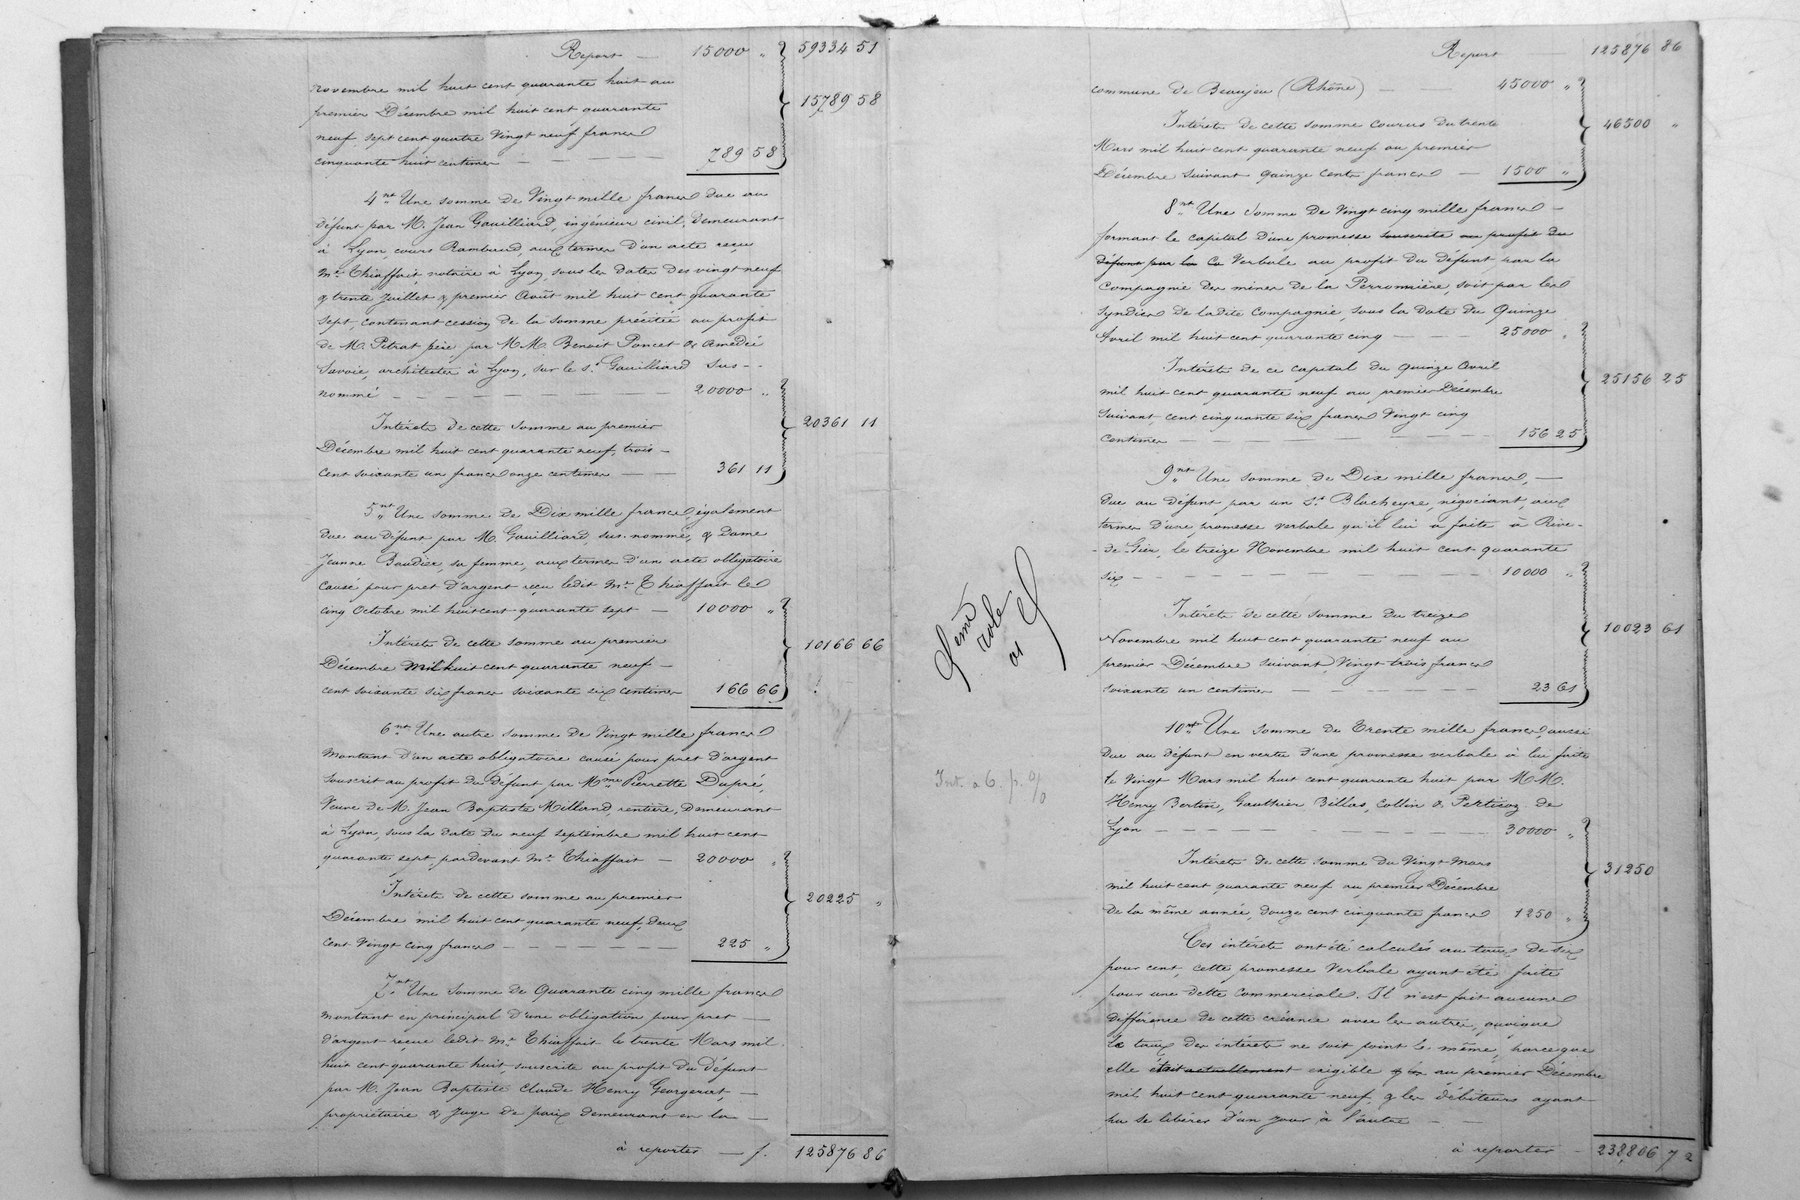 Report — 15000 " 59334 51
novembre mil huit cent quarante huit au
premier Décembre mil huit cent quarante 15789 58
neuf, sept cent quatre Vingt neuf francs
cinquante huit centimes — — — — — 789 58
4nt Une somme de Vingt mille francs due au
défunt par M. Jean Gouilliard, ingénieur civil, demeurant
à Lyon, cours Rambaud, aux termes d'un acte reçu
Me Thiaffait, notaire à Lyon, sous les dates des vingt neuf
& trente Juillet & premier Août mil huit cent quarante
sept, contenant cession de la somme précitée au profit
de M. Pitrat père par M.M. Benoit Poncet & Amédée
Savoie, architectes à Lyon, sur le s. Gouilliard sus-
nommé — — — — — — — — 20000 "
Intérêts de cette somme au premier 20361 11
Décembre mil huit cent quarante neuf, trois —
cent soixante un francs onze centimes — — 361 11
5nt Une somme de Dix mille francs également
due au défunt par M. Gouilliard, sus-nommé, & Dame
Jeanne Baudier, sa femme, aux termes d'un acte obligatoire
causé pour prêt d'argent reçu ledit Me Thiaffait le
cinq Octobre mil huit cent quarante sept — 10000 "
Intérêts de cette somme au premier 10166 66
Décembre mil huit cent quarante neuf —
cent soixante six francs soixante six centimes 166 66
6nt Une autre somme de Vingt mille francs
montant d'un acte obligatoire causé pour prêt d'argent
souscrit au profit du défunt, par Mme Pierrette Dupré,
Veuve de M. Jean Baptiste Milland, rentière, demeurant
à Lyon, sous la date du neuf septembre mil huit cent
quarante sept, pardevant Me Thiaffait — 20000 "
Intérêts de cette somme au premier 20225 "
Décembre mil huit cent quarante neuf, deux
cent Vingt cinq francs — — — — — 225 "
7nt Une somme de Quarante cinq mille francs
montant en principal d'une obligation pour prêt —
d'argent reçue ledit Me Thiaffait le trente Mars mil
huit cent quarante huit, souscrite au profit du Défunt
par M. Jean Baptiste Claude Henry Georgerat, —
propriétaire & Juge de paix demeurant en la —
à reporter — f. 125876 86
5eme
role
Int. a 6. p. %
Report 125876 86
commune de Beaujeu (Rhône) — — 45000 "
Intérêts de cette somme courus du trente 46500 "
Mars mil huit cent quarante neuf au premier
Décembre suivant quinze cents francs — 1500 "
8nt Une somme de Vingt cinq mille francs —
formant le capital d'une promesse souscrite au profit du
défunt par la Ce Verbale au profit du défunt, par la
Compagnie des mines de la Perronnière, soit par les
Syndics de ladite Compagnie, sous la date du Quinze
Avril mil huit cent quarante cinq — — — 25000 "
Intérêts de ce capital du quinze Avril 25156 25
mil huit cent quarante neuf au premier Décembre
suivant, cent cinquante six francs Vingt cinq
centimes — — — — — — — 156 25
9nt Une somme de Dix mille francs, —
due au défunt, par un st Blacheyre, négociant, aux
termes d'une promesse verbale qu'il lui a faite à Rive-
-de Gier, le treize Novembre mil huit cent quarante
six — — — — — — — 10000 "
Intérêts de cette somme du treize 10023 61
Novembre mil huit cent quarante neuf au
premier Décembre suivant, Vingt-trois francs
soixante un centimes — — — — — 23 61
10nt Une somme de Trente mille francs, aussi
due au défunt en vertu d'une promesse verbale à lui faite
le Vingt Mars mil huit cent quarante huit par M.M.
Henry Bertin, Gauthier Billas, Collin & Pertisoz de
Lyon — — — — — — — 30000 "
Intérêts de cette somme du Vingt mars 31250
mil huit cent quarante neuf au premier Décembre
de la même année, douze cent cinquante francs 1250 "
Ces intérêts ont été calculés au taux de six
pour cent, cette promesse Verbale ayant été faite
pour une dette commerciale. Il n'est fait aucune
différence de cette créance avec les autres, quoique
le taux des intérêts ne soit point le même, parceque
elle était actuellement exigible au premier Décembre
mil huit cent quarante neuf & les débiteurs ayant
pu se libérer d'un jour à l'autre — —
à reporter — 238,806 72